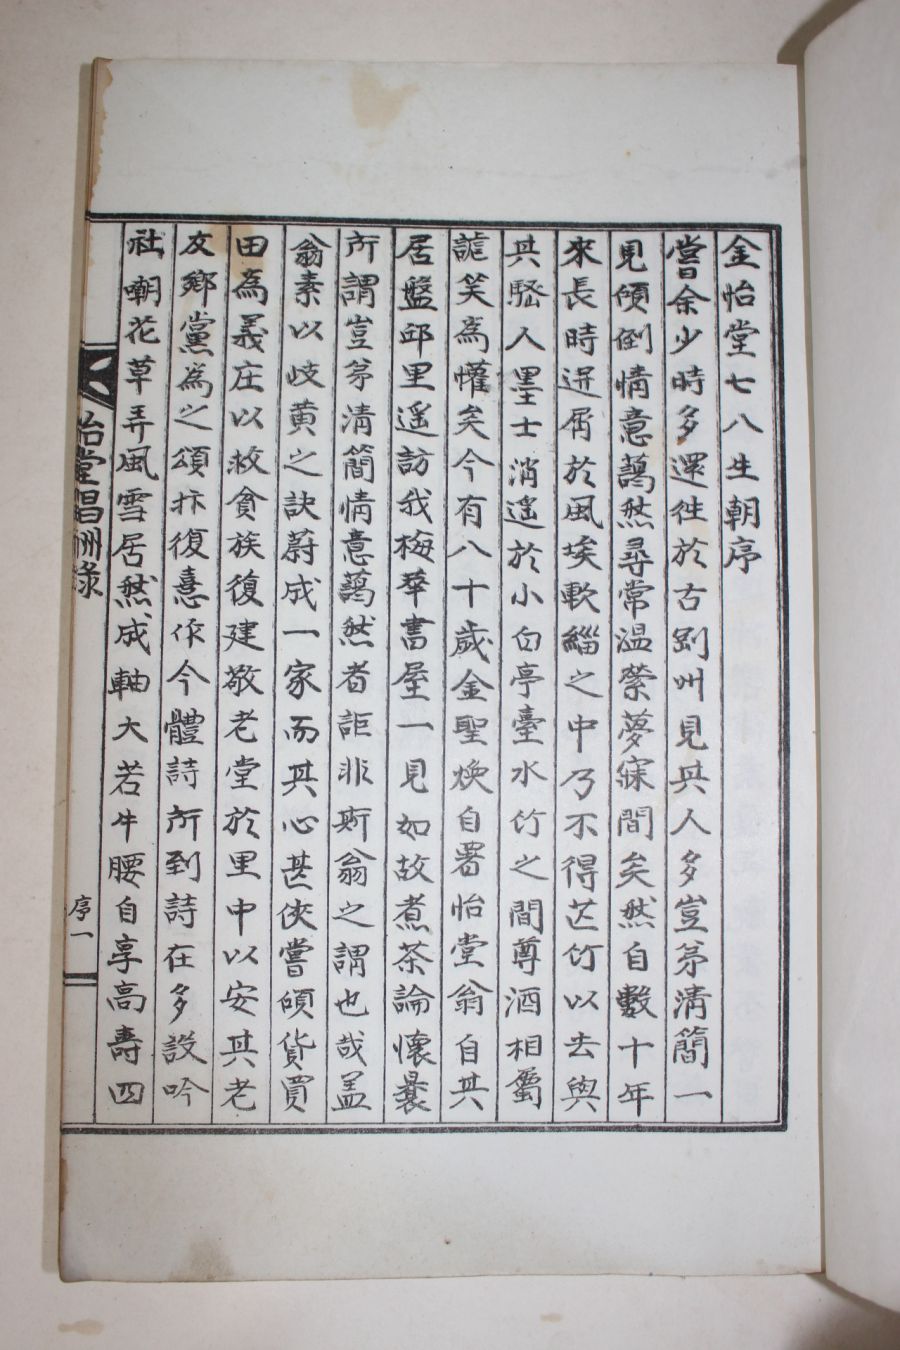 金怡堂七八生朝序
嘗余少時多還徃於古剡州見其人多豈弟淸簡一
見傾倒情意藹然尋常温縈夢寐間矣然自數十年
來長時迸屑於風埃軟緇之中乃不得芒竹以去與
其騷人墨士消遥於小白亭臺水竹之間尊酒相屬
詑笑爲懽矣今有八十歲金聖煥自署怡堂翁自其
居盤邱里遥訪我梅華書屋一見如故煮茶論懷曩
所謂豈弟淸簡情意藹然者詎非斯翁之謂也哉盖
翁素以歧黄之訣蔚成一家而其心甚俠嘗傾貨買
田爲義庄以救貧族復建敬老堂於里中以安其老
友鄕黨爲之頌抃復憙作今體詩所到詩在多設吟
社嘲花草弄風雪居然成軸大若牛腰自享高壽四
怡堂唱酬錄
序一